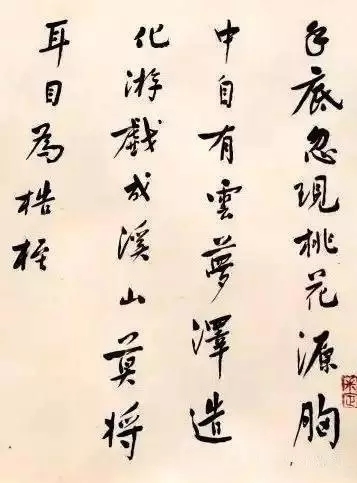 手底忽現桃花源胸
中自有雲夢澤造
化游戲成溪山莫將
耳目為梏桎